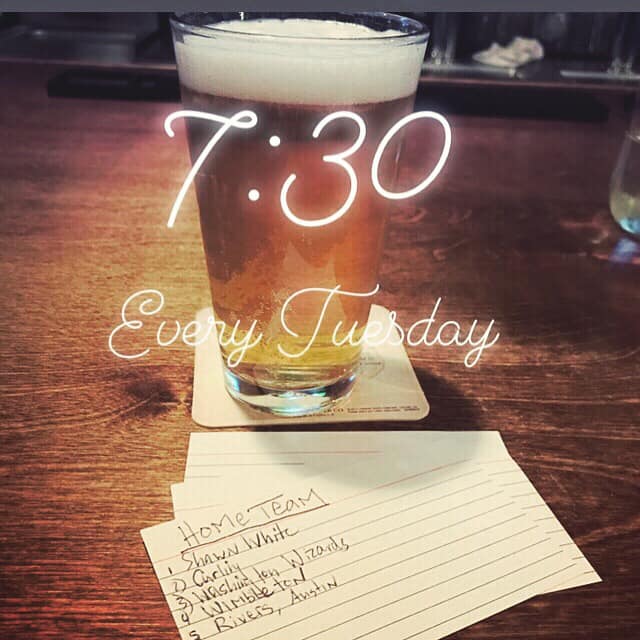 7:30
Every Tuesday
Home Team
1 Shawn White
2) Curling
3) Washington Wizards
4 Wimbleton
5 Rivers, Austin